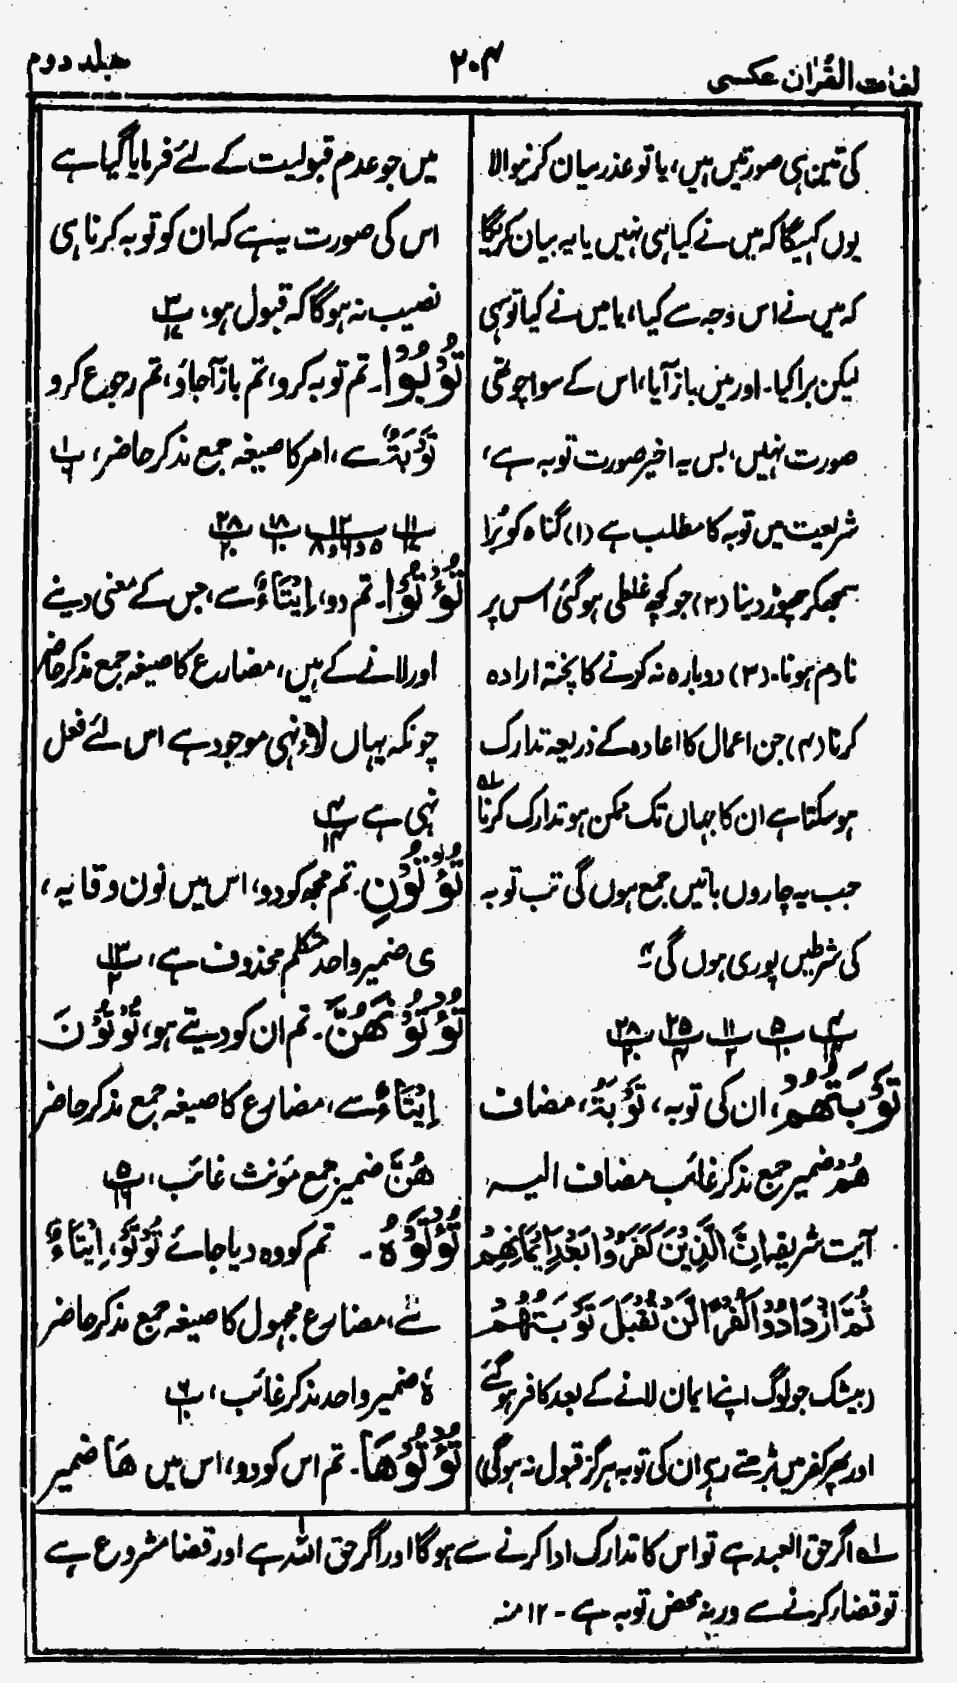 لغات القرآن عکسی
۲۰۴
جلد دوم
کی تین ہی صورتیں ہیں، یا تو عذر بیان کرنیوالا
یوں کہیگا کہ میں نے کیا ہی نہیں یا یہ بیان کریگا
کہ میں نے اس وجہ سے کیا، یا میں نے کیا تو سہی
لیکن برا کیا۔ اور میں باز آیا، اس کے سوا چوتھی
صورت نہیں، بس یہ اخیر صورت توبہ ہے،
شریعت میں توبہ کا مطلب ہے (۱) گناہ کو بُرا
سمجھکر چھوڑ دینا (۲) جو کچھ غلطی ہو گئی اس پر
نادم ہونا۔ (۳) دوبارہ نہ کرنے کا پختہ ارادہ
کرنا (۴) جن اعمال کا اعادہ کے ذریعہ تدارک
ہو سکتا ہے ان کا جہاں تک ممکن ہو تدارک کرنا ۱ھ
جب یہ چاروں باتیں جمع ہوں گی تب توبہ
کی شرطیں پوری ہوں گی؛
پ۴/۱۴ پ۵/۱۰ پ۱۱/۲ پ۲۵/۴ پ۲۸/۲۰
تَوْبَتُهُمْ، ان کی توبہ، تَوْبَةٌ، مضاف
هُمْ ضمیر جمع مذکر غائب مضاف الیہ
آیت شریفہ اِنَّ الَّذِيْنَ كَفَرُوْا بَعْدَ اِيْمَانِهِمْ
ثُمَّ ازْدَادُوْا كُفْرًا لَّنْ تُقْبَلَ تَوْبَتُهُمْ
(بیشک جو لوگ اپنے ایمان لانے کے بعد کافر ہو گئے
اور پھر کفر میں بڑھتے رہے ان کی توبہ ہرگز قبول نہ ہوگی)
میں جو عدم قبولیت کے لئے فرمایا گیا ہے
اس کی صورت یہ ہے کہ ان کو توبہ کرنا ہی
نصیب نہ ہوگا کہ قبول ہو، پ۳/۱۷
تُوْبُوْا۔ تم توبہ کرو، تم باز آجاؤ، تم رجوع کرو
تَوْبَةٌ سے، امر کا صیغہ جمع مذکر حاضر، پ۱/۶
پ۱۱/۱۷ پ۱۲/۵و۶و۸ پ۱۸/۱۰ پ۲۸/۲۰
تُؤْتُوْا۔ تم دو، اِيْتَاءٌ سے، جس کے معنی دینے
اور لانے کے ہیں، مضارع کا صیغہ جمع مذکر حاضر
چونکہ یہاں لاءِ نہی موجود ہے اس لئے فعل
نہی ہے پ۴/۱۲
تُؤْتُوْنِ۔ تم مجھ کو دو، اس میں نون وقایہ،
ی ضمیر واحد متکلم محذوف ہے، پ۱۳/۲
تُؤْتُوْنَهُنَّ۔ تم ان کو دیتے ہو، تُؤْتُوْنَ
اِيْتَاءٌ سے، مضارع کا صیغہ جمع مذکر حاضر
هُنَّ ضمیر جمع مؤنث غائب، پ۵/۱۶
تُؤْتَوْهُ۔ تم کو وہ دیا جائے تُؤْتَوْ، اِيْتَاءٌ
سے، مضارع مجہول کا صیغہ جمع مذکر حاضر
ہٗ ضمیر واحد مذکر غائب، پ۶/۱۰
تُؤْتُوْهَا۔ تم اس کو دو، اس میں هَا ضمیر
۱ھ اگر حق العبد ہے تو اس کا تدارک ادا کرنے سے ہوگا اور اگر حق اللہ ہے اور قضا مشروع ہے
تو قضاء کرنے سے ورنہ محض توبہ ہے۔ ۱۲ منہ